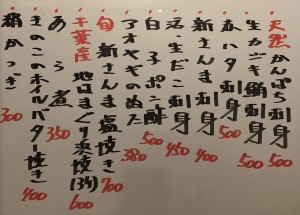 天然かんぱち刺身 500
生カジキ鮪刺身 500
赤ハタ刺身 500
新さんま刺身 400
活生だこ刺身 450
白子ポン酢 500
アオヤギのぬた 380
旬 新さんま塩焼き 700
千葉産 地はまぐり浜焼(3ケ) 600
あら煮 350
きのこのホイルバター焼き 400
絹かつぎ 300